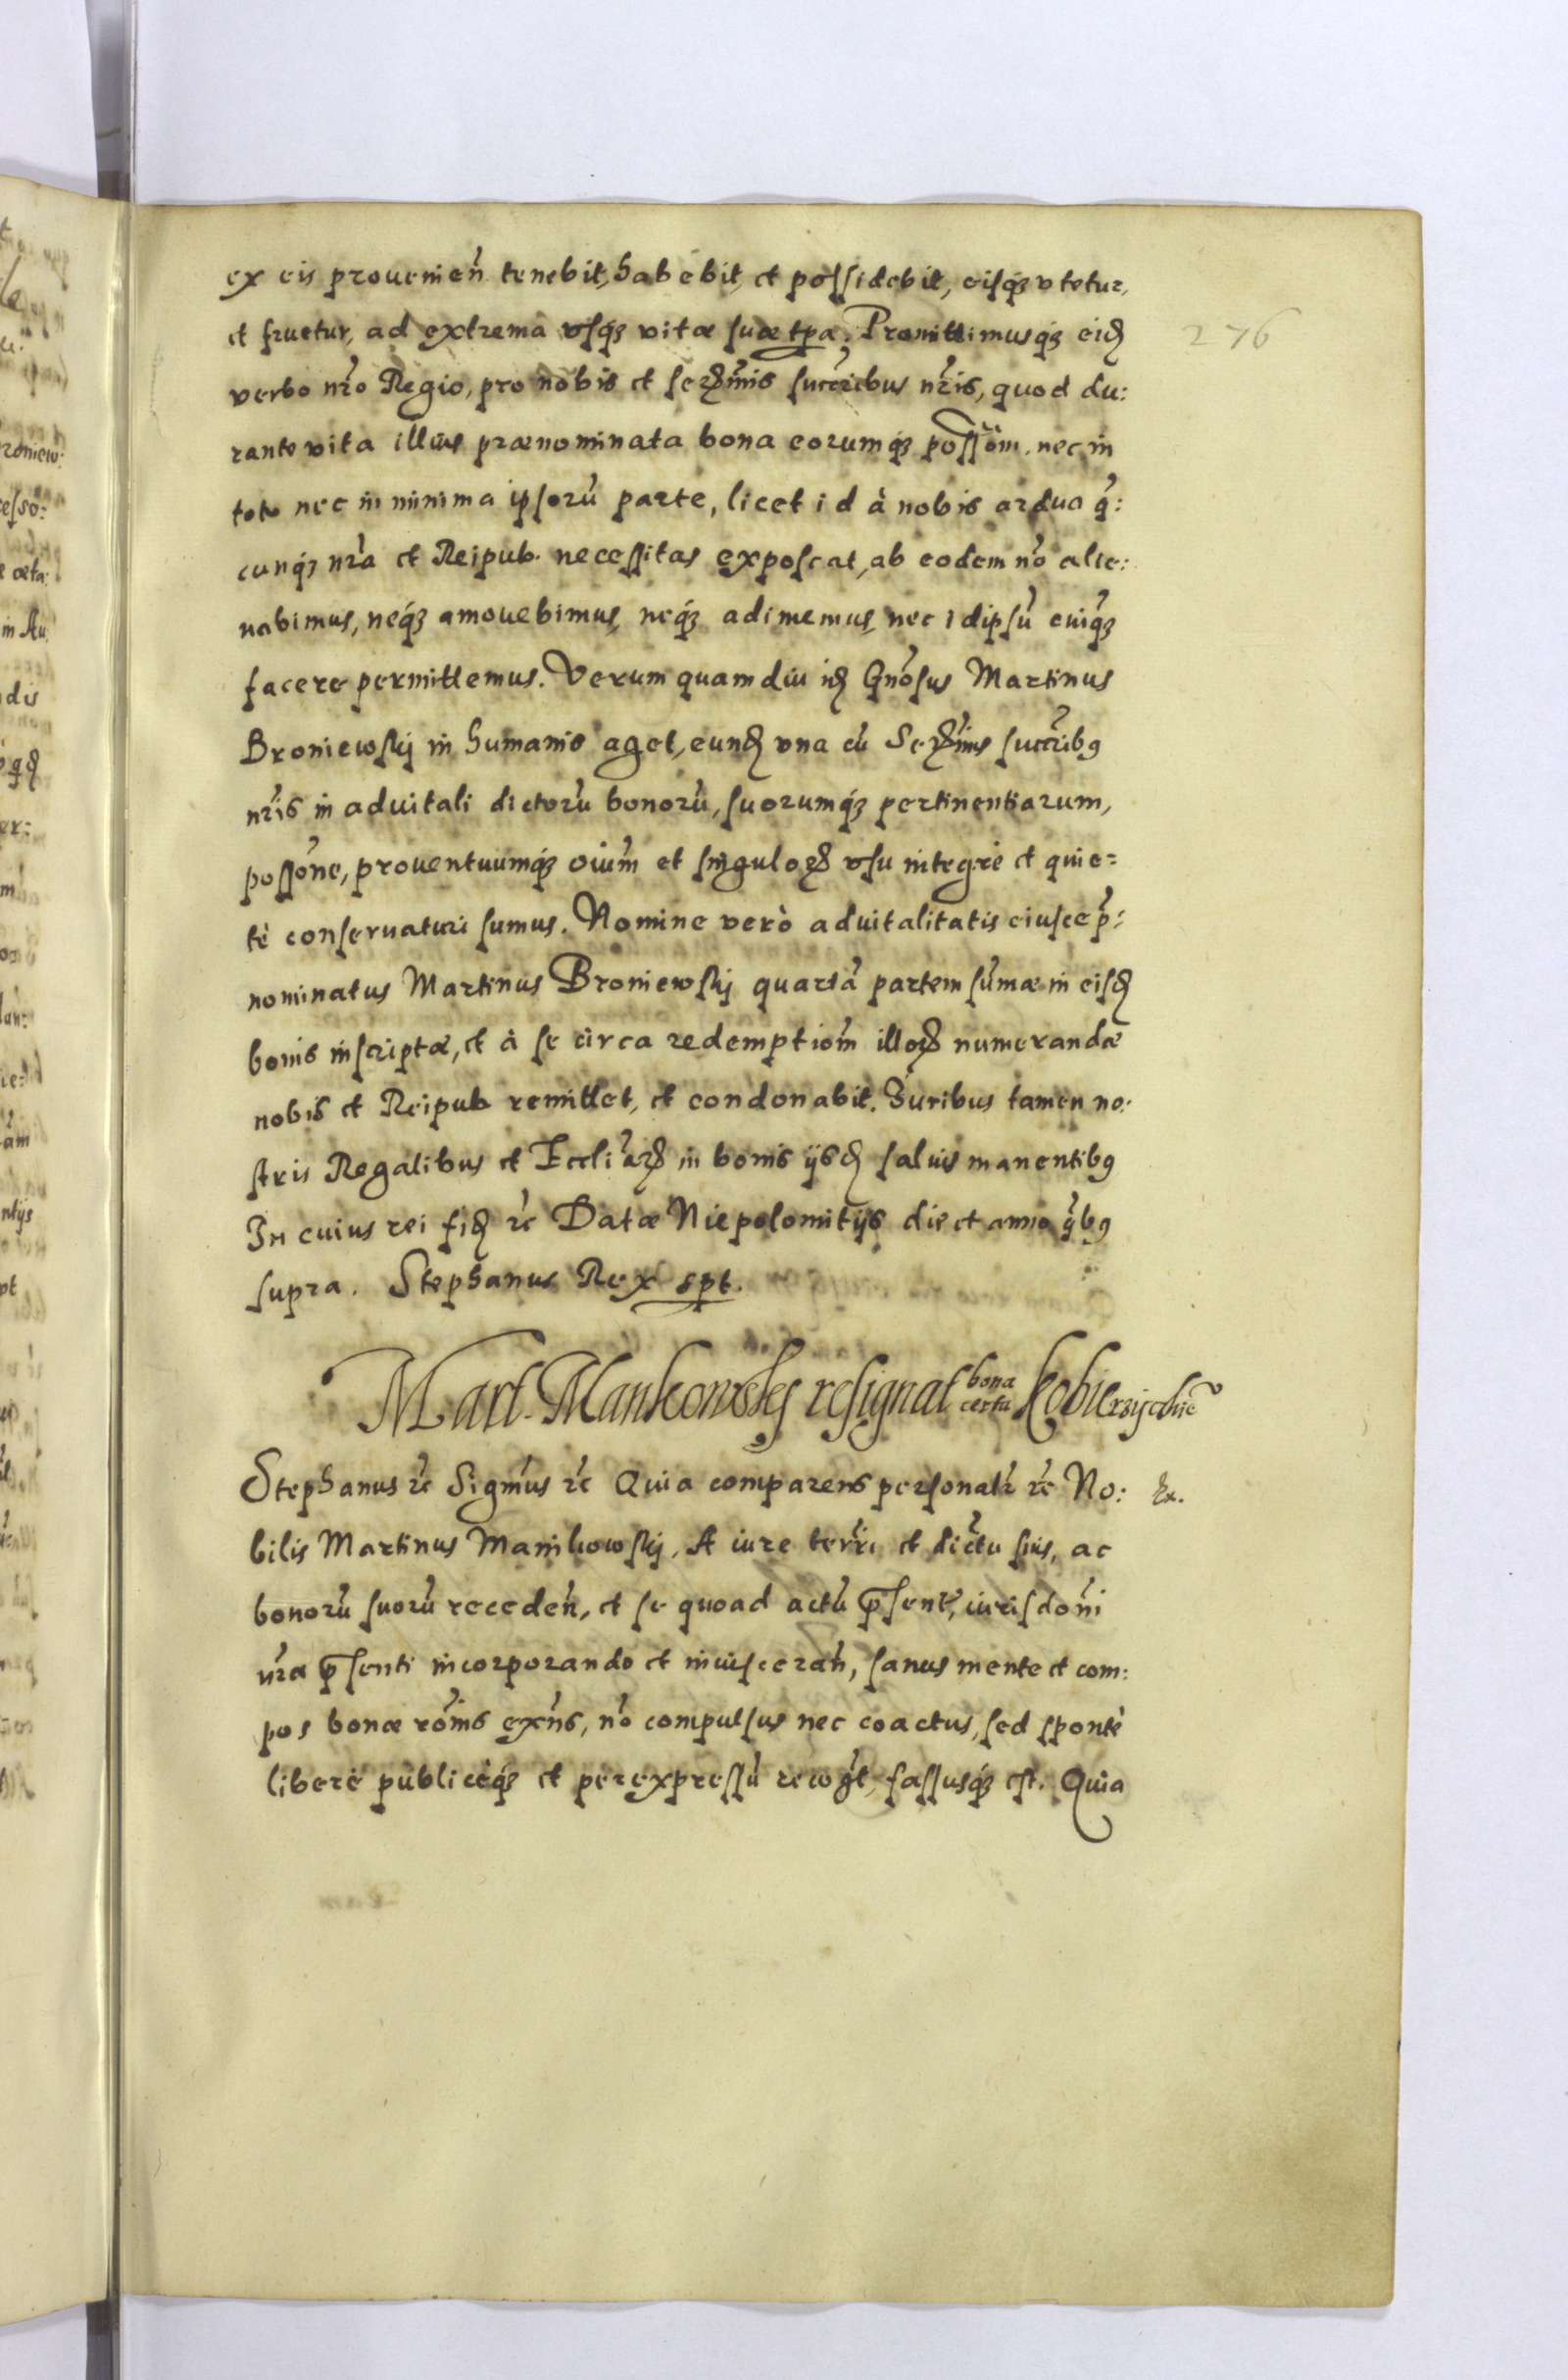 ex eis prouenien̄ tenebit, habebit, et possidebit, eisq́ꝫ vtetur,
et fruetur, ad extrema vsq́ꝫ vitæ suæ tp̄a. Promittimusq́ꝫ eid̄
276
verbo nr̃o Regio, pro nobis et serꝫm̃is succr̃ibus nr̃is, quod du:
rante vita illius prænominata bona eorumq́ꝫ possõm. nec in
toto nec in minima ipsorũ parte, licet id à nobis ardua q̃:
cunq́ꝫ nr̃a et Reipub. necessitas exposcat, ab eodem nõ alie:
nabimus, neq́ꝫ amouebimus, neq́ꝫ adimemus, nec idipsũ cuiq̃ꝫ
facere permittemus. Verum quamdiu id̄ Gnõsus Martinus
Broniewskj in humanis aget, eund̄ vna cũ Serꝫm̃is succr̃ibꝯ
nr̃is in aduitali dictorũ bonorũ, suorumq́ꝫ pertinentiarum,
possõne, prouentuumq́ꝫ oiũm et singuloꝝ vsu integrè et quie=
tè conseruaturi sumus. Nomine verò aduitalitatis eiusce p̃:
nominatus Martinus Broniewskj quartã partem sũmæ in eisd̄
bonis inscriptæ, et à se circa redemptiom̃ illoꝝ numerandæ
nobis et Reipub remittet, et condonabit. Iuribus tamen no:
stris Regalibus et Eccliãꝝ in bonis ijsd̄ saluis manentibꝯ
In cuius rei fid̄ ꝛc̃ Datæ Niepolomitijs die et anno q̃bꝯ
supra. Stephanus Rex spt.
Mart. Mankowskj resignat bona certa Kobierzijczkie
Stephanus ꝛc̃ Sigm̃us ꝛc̃ Quia comparens personalr̃ ꝛc̃ No:
bilis Martinus Manikowskj, A iure terr̃i et dic̃tu suis, ac
bonorũ suorũ receden̄, et se quoad actũ p̄sentẽ, iurisdom̃i
nr̃a p̄senti incorporando et inuisceran̄, sanus mente et com:
pos bonæ rõnis exñs, nõ compulsus nec coactus, sed spontè
liberè publicèq́ꝫ et per expressũ recogt̃, fassusq́ꝫ est. Quia